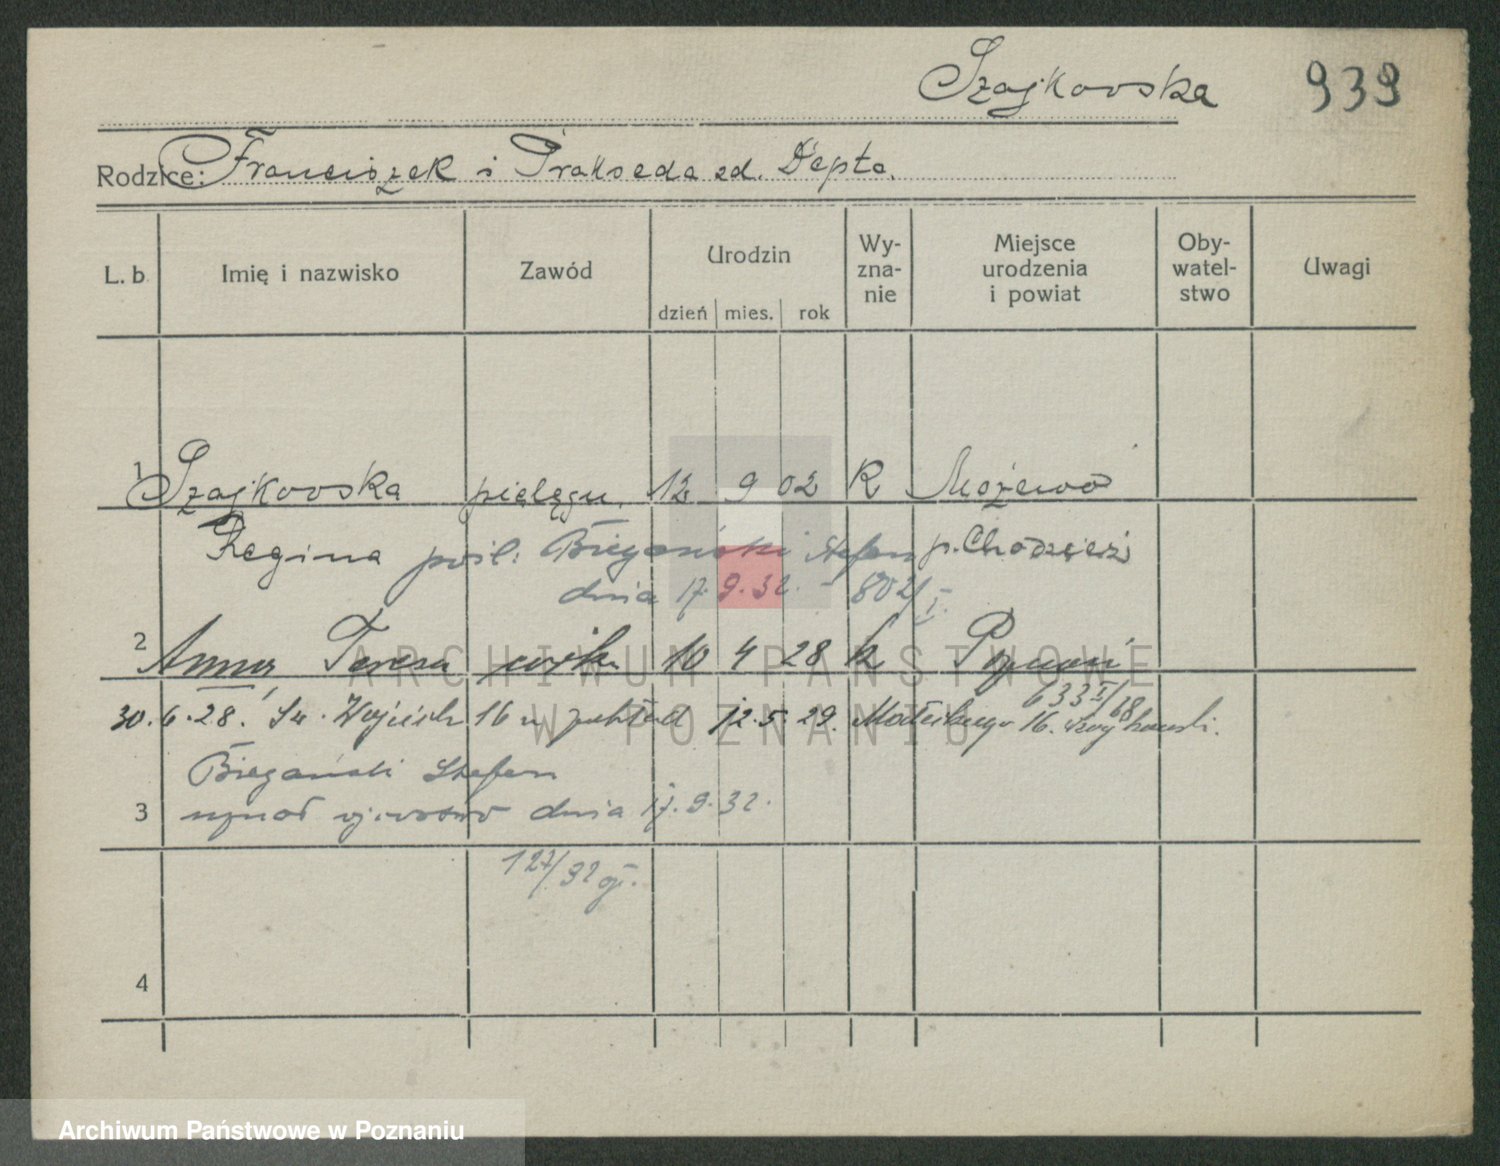 Szajkowska 939
Rodzice: Franciszek i Prakseda zd. Depta.
L. b. Imię i nazwisko Zawód Urodzin dzień mies. rok Wy-zna-nie Miejsce urodzenia i powiat Oby-watel-stwo Uwagi
1 Szajkowska pielęgn. 12 9 02 R
Regina pośl. Biegański Stefan p. Chodzież
dnia 17.9.32. - 802/I.
2 Anna Teresa córka 10 4 28 k Poznań
633 I/68
30.6.28. Św. Wojciech 16 12.5.29. 16.
Biegański Stefan
3 uznał ojcostwo dnia 17.9.32.
127/32 oj.
4
ARCHIWUM PAŃSTWOWE
W POZNANIU
Archiwum Państwowe w Poznaniu